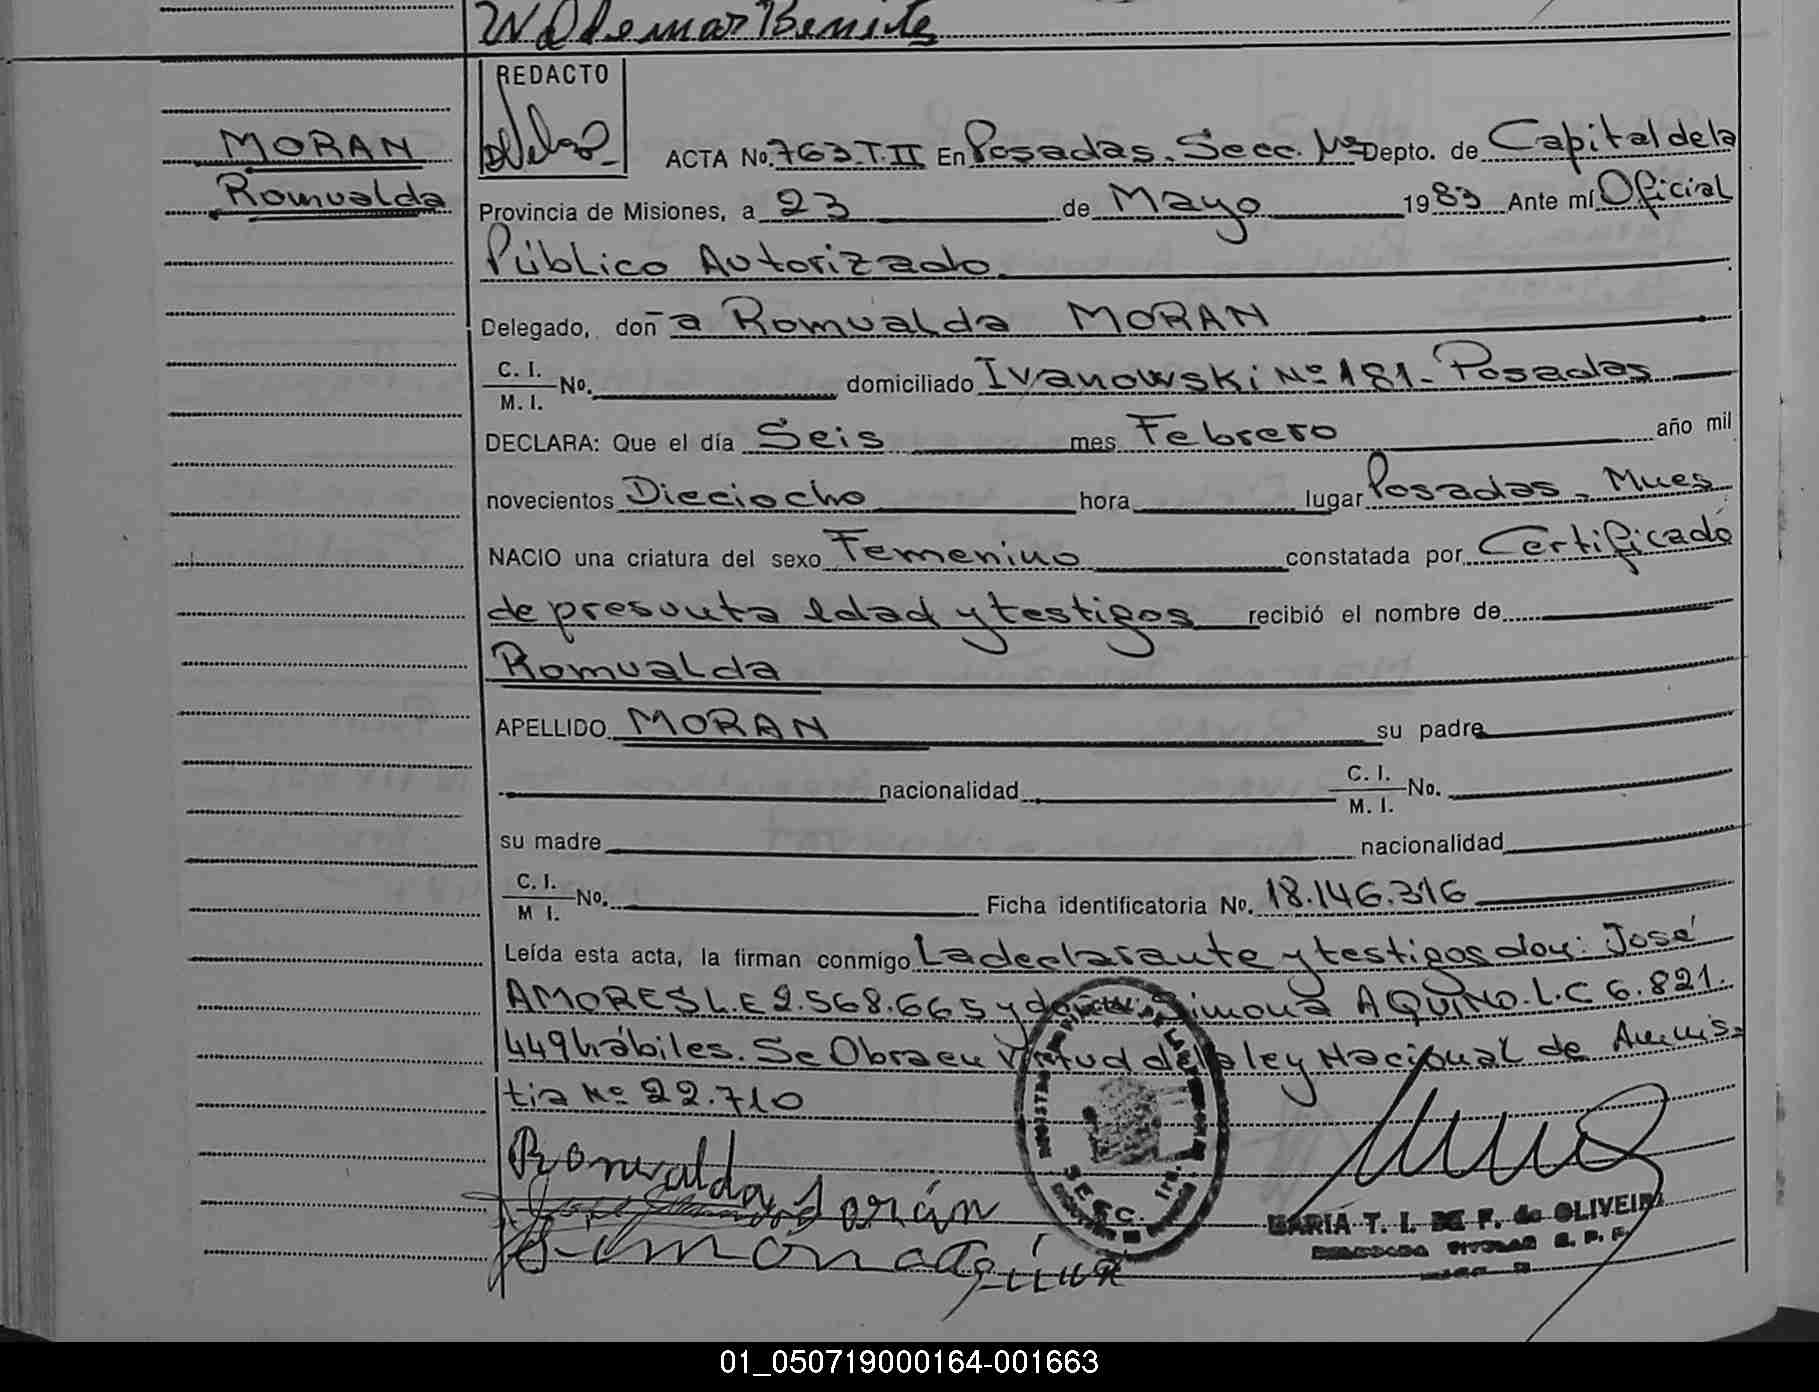 Waldemar Benitez
REDACTO
MORAN
Romualda
ACTA No. 763.T.II En Posadas. Secc. 1ra Depto. de Capital de la
Provincia de Misiones, a 23 de Mayo 1983 Ante mí Oficial
Público Autorizado.
Delegado, doña Romualda MORAN
C. I.
M. I. No. domiciliado Ivanowski Nº 181- Posadas
DECLARA: Que el día Seis mes Febrero año mil
novecientos Dieciocho hora lugar Posadas - Mnes
NACIO una criatura del sexo Femenino constatada por Certificado
de presunta edad y testigos recibió el nombre de
Romualda
APELLIDO MORAN su padre
nacionalidad C. I.
M. I. No.
su madre nacionalidad
C. I.
M I. No. Ficha identificatoria No. 18.146.316
Leída esta acta, la firman conmigo La declarante y testigos don: José
AMORES L.E 2.568.665 y doña: Simona AQUINO. L.C 6.821.
449 hábiles. Se Obra en Virtud de la ley Nacional de Amnis-
tia Nº 22.710
Romualda Morán
Simona Aquino
SECC. 1ra.
MARIA T. I. DE F. de OLIVEIRA
DELEGADA TITULAR
01_050719000164-001663